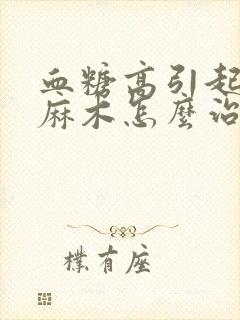 血糖高引起
麻木怎麼治
樸有座